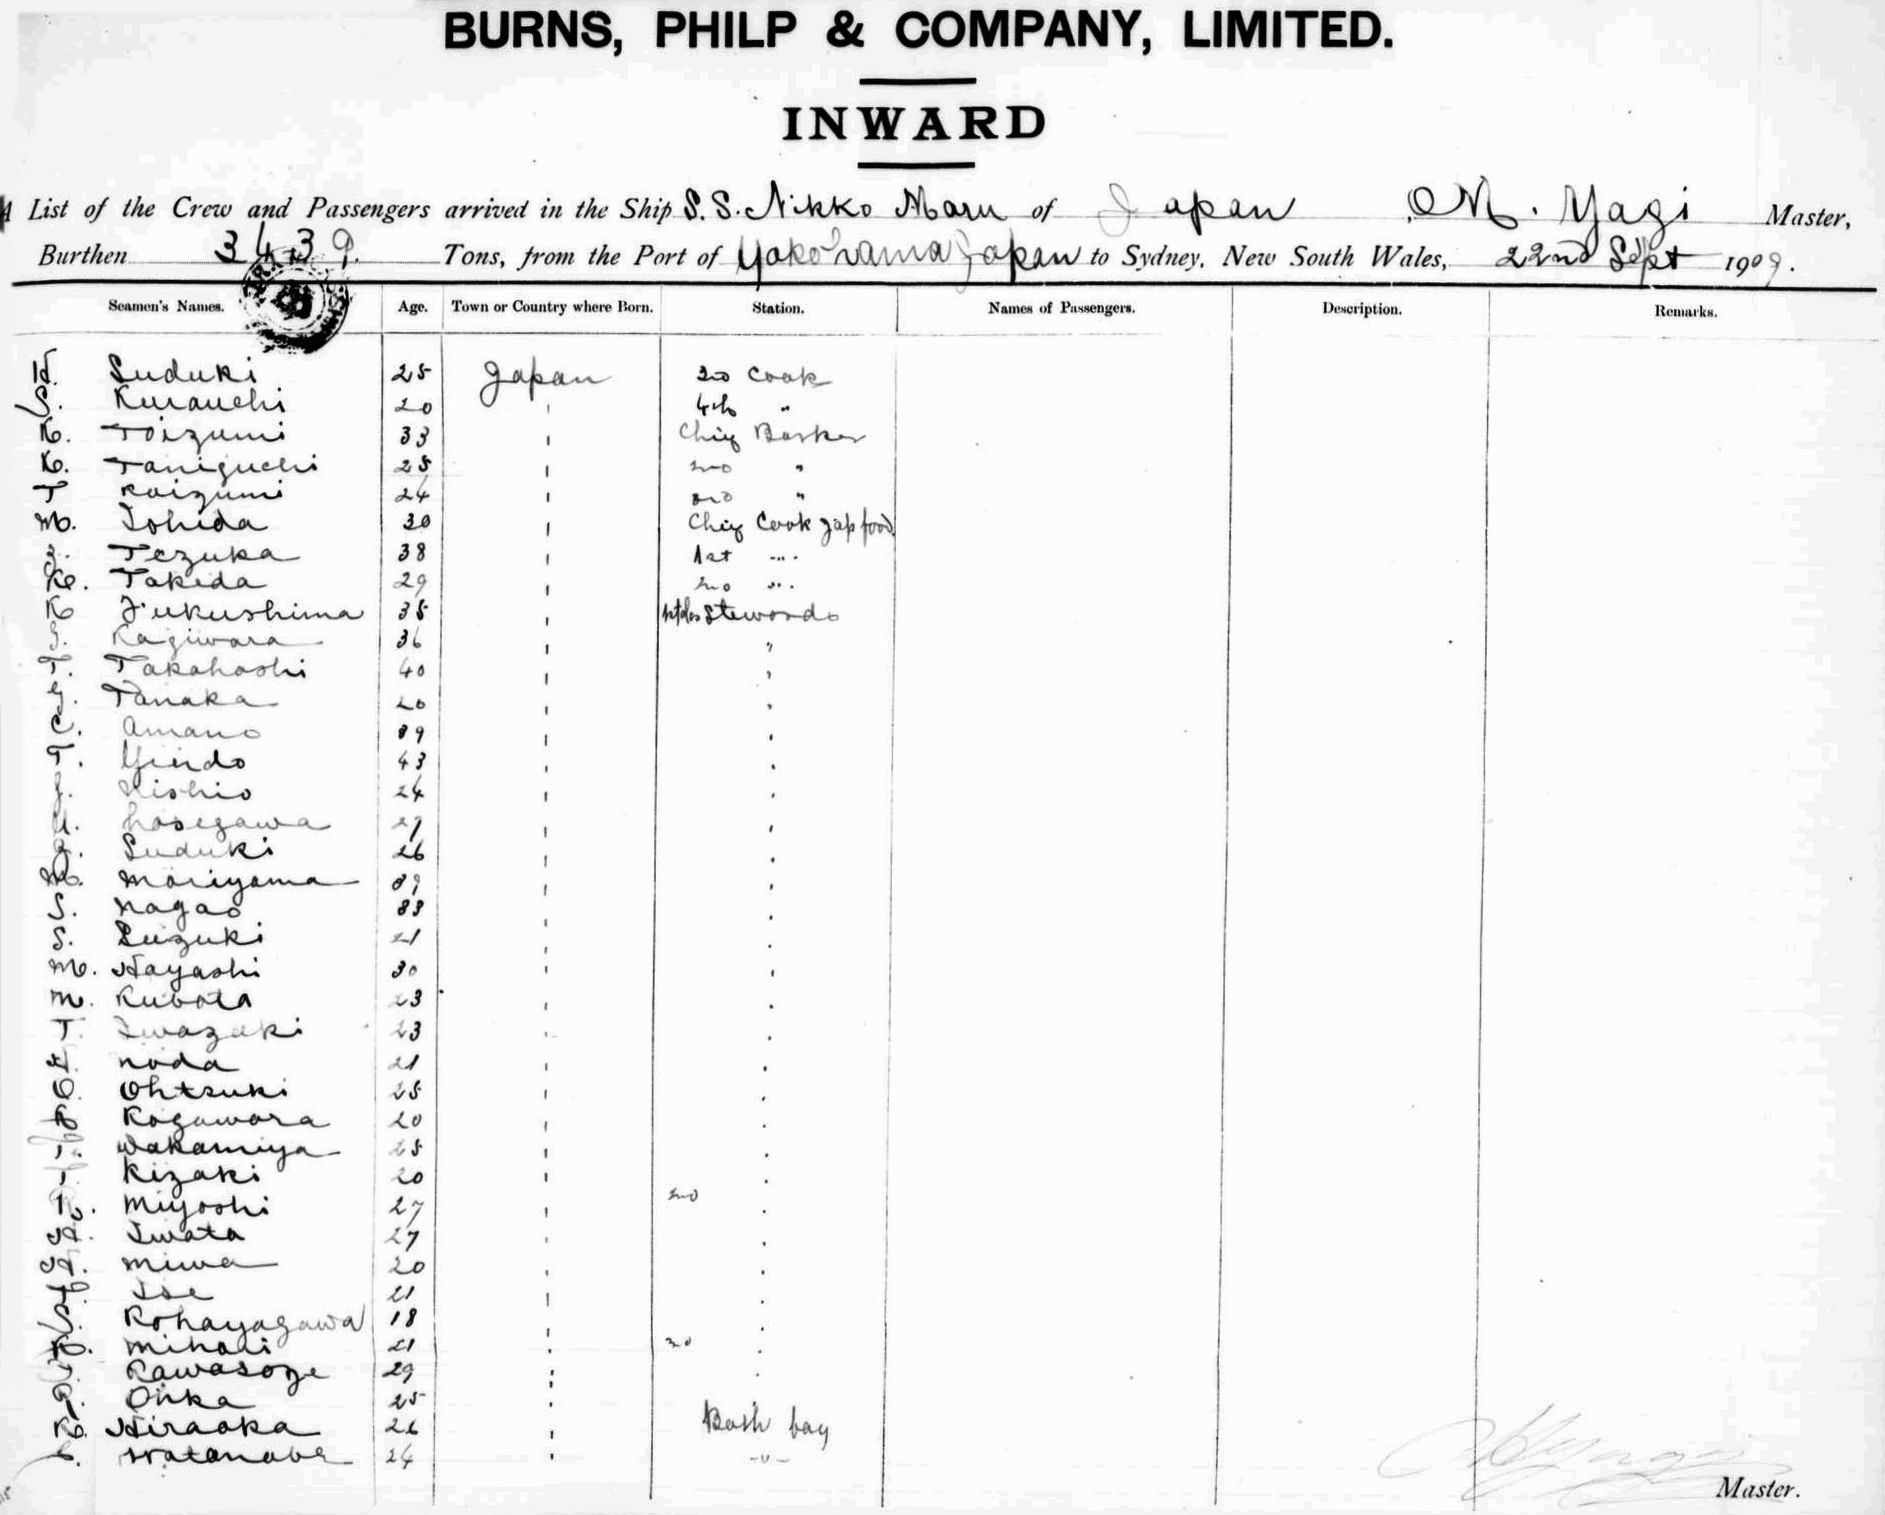 BURNS, PHILP & COMPANY, LIMITED.
INWARD
A List of the Crew and Passengers arrived in the Ship S.S. Nikko Maru of Japan M. Yagi Master,
Burthen 3439. Tons, from the Port of Yokohama Japan to Sydney, New South Wales, 22nd Sept 1909.
Seamen's Names. Age. Town or Country where Born. Station. Names of Passengers. Description. Remarks.
H. Suduki 25 Japan 2nd Cook
S. Kurauchi 20 " 4th "
K. Toizumi 33 " Chief Barker
K. Taniguchi 25 " 2nd "
T Koizumi 24 " 3rd "
M. Ishida 30 " Chief Cook Jap food
Tezuka 38 " 1st "
K. Takeda 29 " 2nd "
K Fukushima 35 " Stewards
Kagiwara 36 " "
T. Takahashi 40 " "
Y. Tanaka 20 " "
C. Amano 39 " "
T. Yindo 43 " "
Nishio 24 " "
Hasegawa 27 " "
Suduki 26 " "
M. Moriyama 39 " "
S. Nagao 33 " "
S. Suzuki 21 " "
M. Hayashi 30 " "
M. Kubota 23 " "
T. Iwazaki 23 " "
Noda 21 " "
O. Ohtsuki 25 " "
Kogawara 20 " "
T. Wakamiya 25 " "
Kizaki 20 " "
Miyoshi 27 " 2nd "
H. Iwata 27 " "
H. Miwa 20 " "
Ise 21 " "
S. Kohayagawa 18 " "
K. Mihori 21 " 3rd "
Kawasoye 29 " "
Ohka 25 " "
K. Hiraoka 26 " Bath bay
Watanabe 24 " -"-
Master.